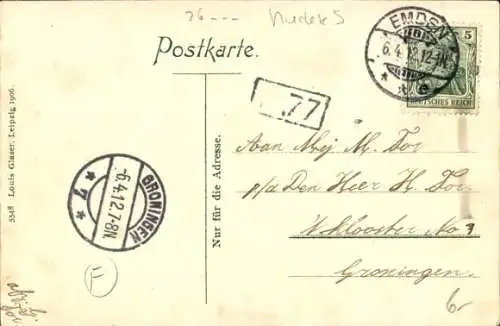 26 ---
Postkarte.
EMDEN
6.4.12.12-1N.
* * e
5
DEUTSCHES REICH
77
Aan Mej M. Tor
p/a Den Heer H. Tor
't Klooster No 9
Groningen.
Nur für die Adresse.
GRONINGEN
6.4.12.7-8N.
* 7 *
5548 Louis Glaser, Leipzig 1906.
6-